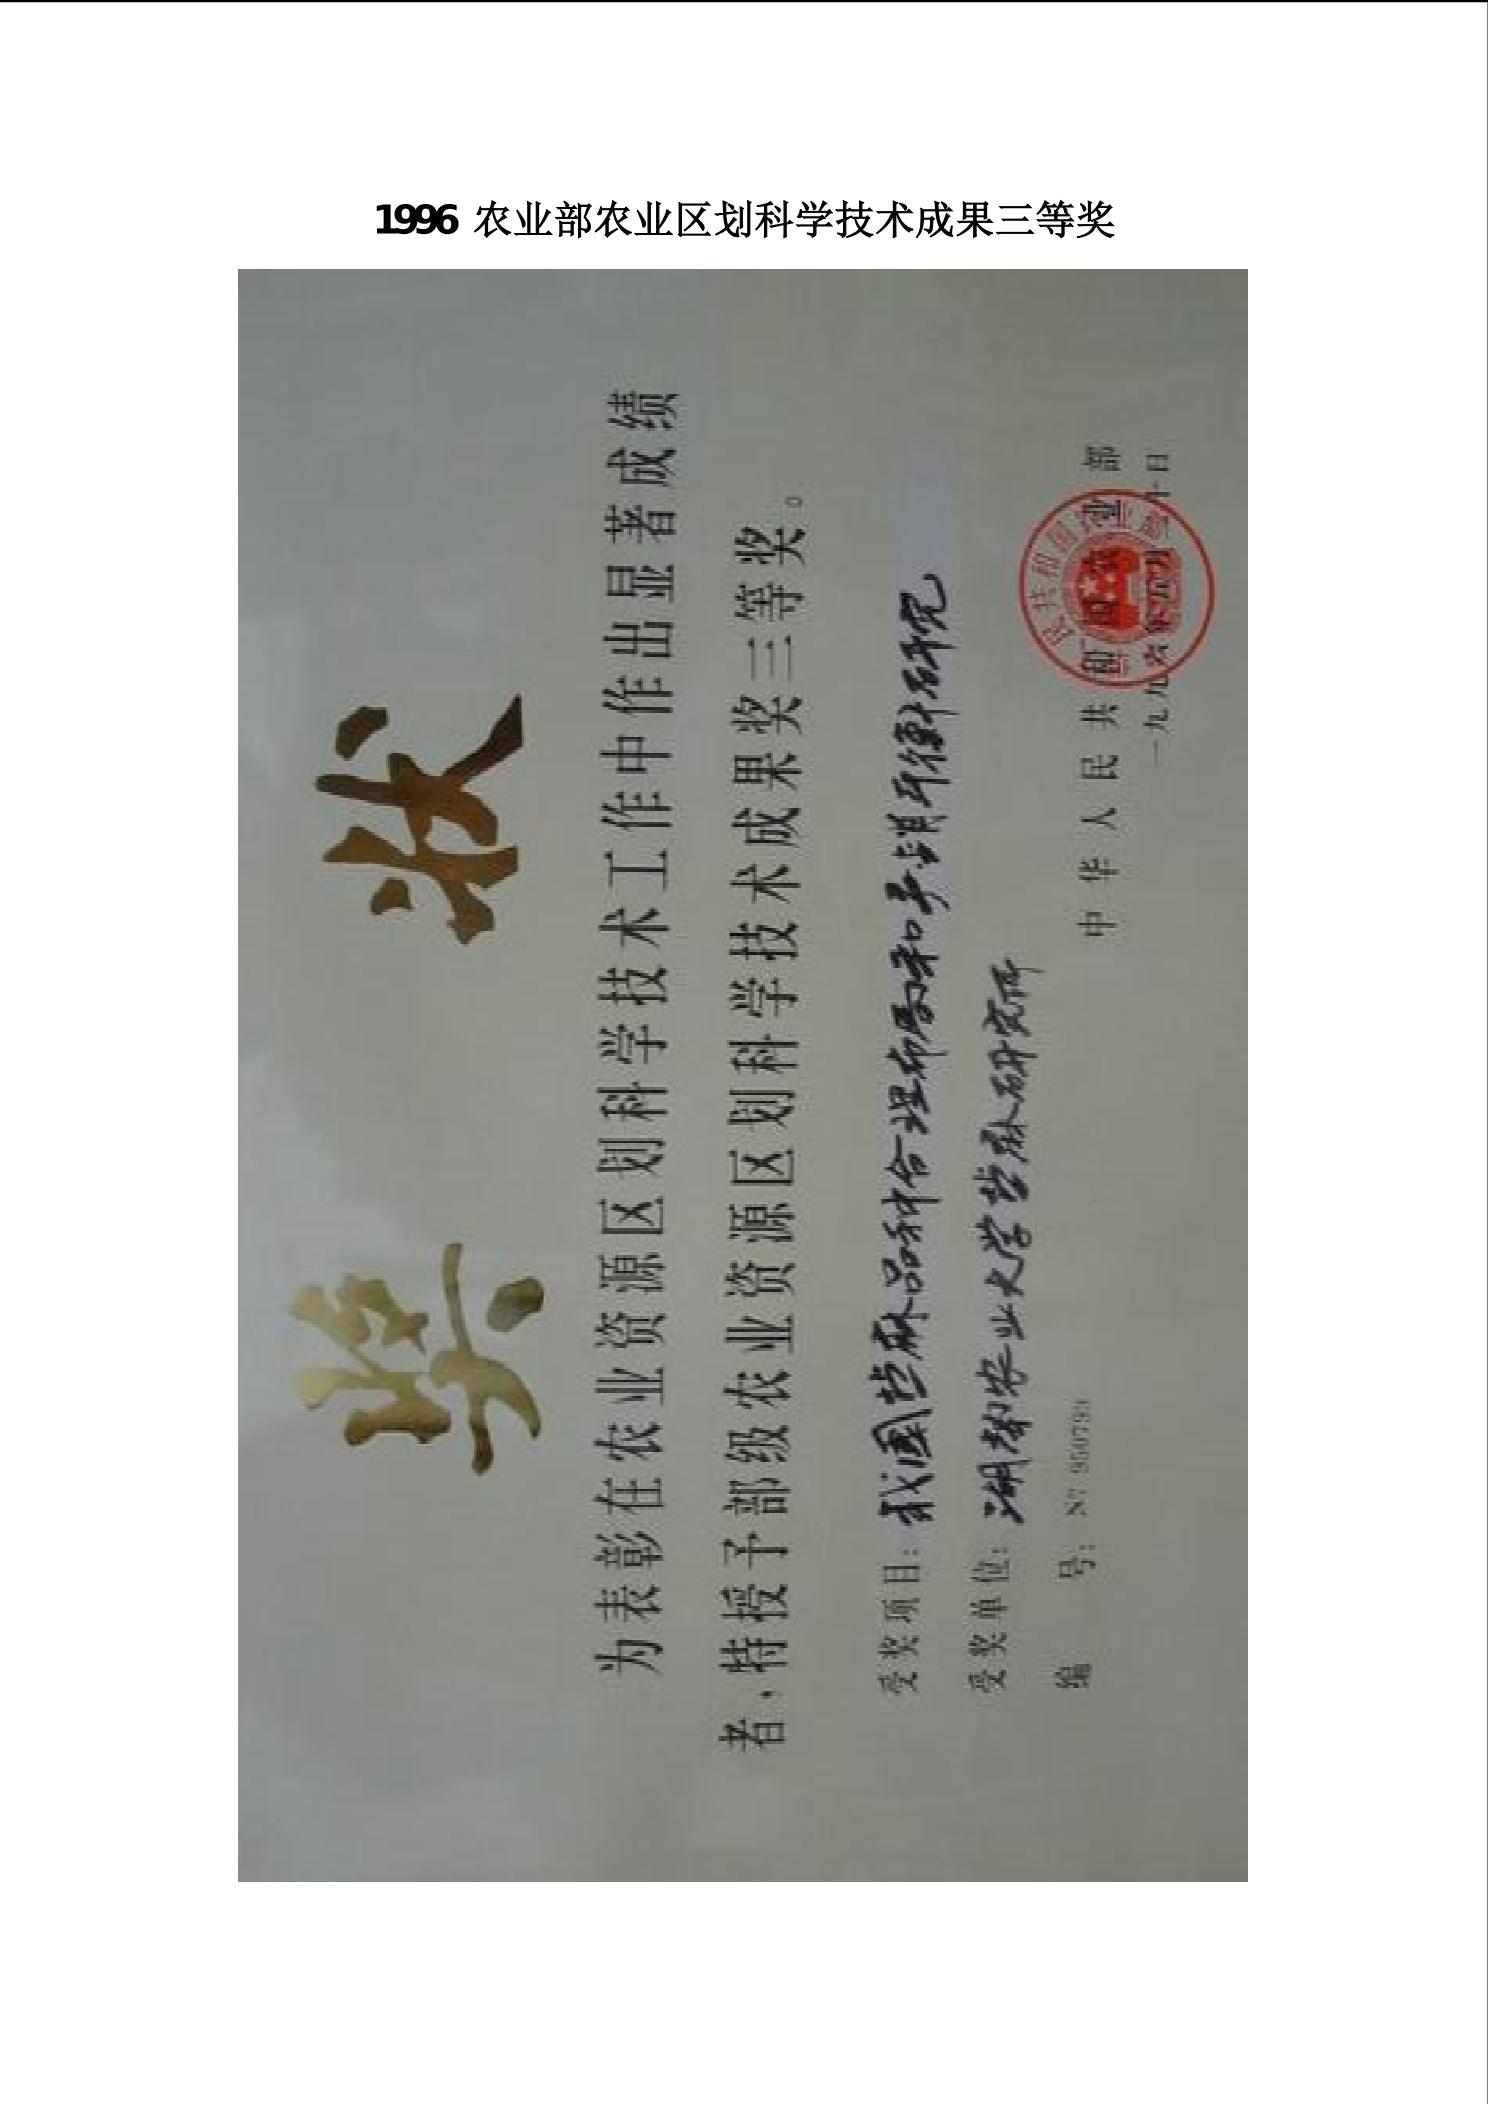 1996 农业部农业区划科学技术成果三等奖
奖 状
为表彰在农业资源区划科学技术工作中作出显著成绩
者，特授予部级农业资源区划科学技术成果奖三等奖。
受奖项目：我國苎麻品种合理布局和产销平衡研究
受奖单位：湖南农业大学苎麻研究所
编 号：Nº 950799
中 华 人 民 共 和 国 农 业 部
一九九六年五月 十日